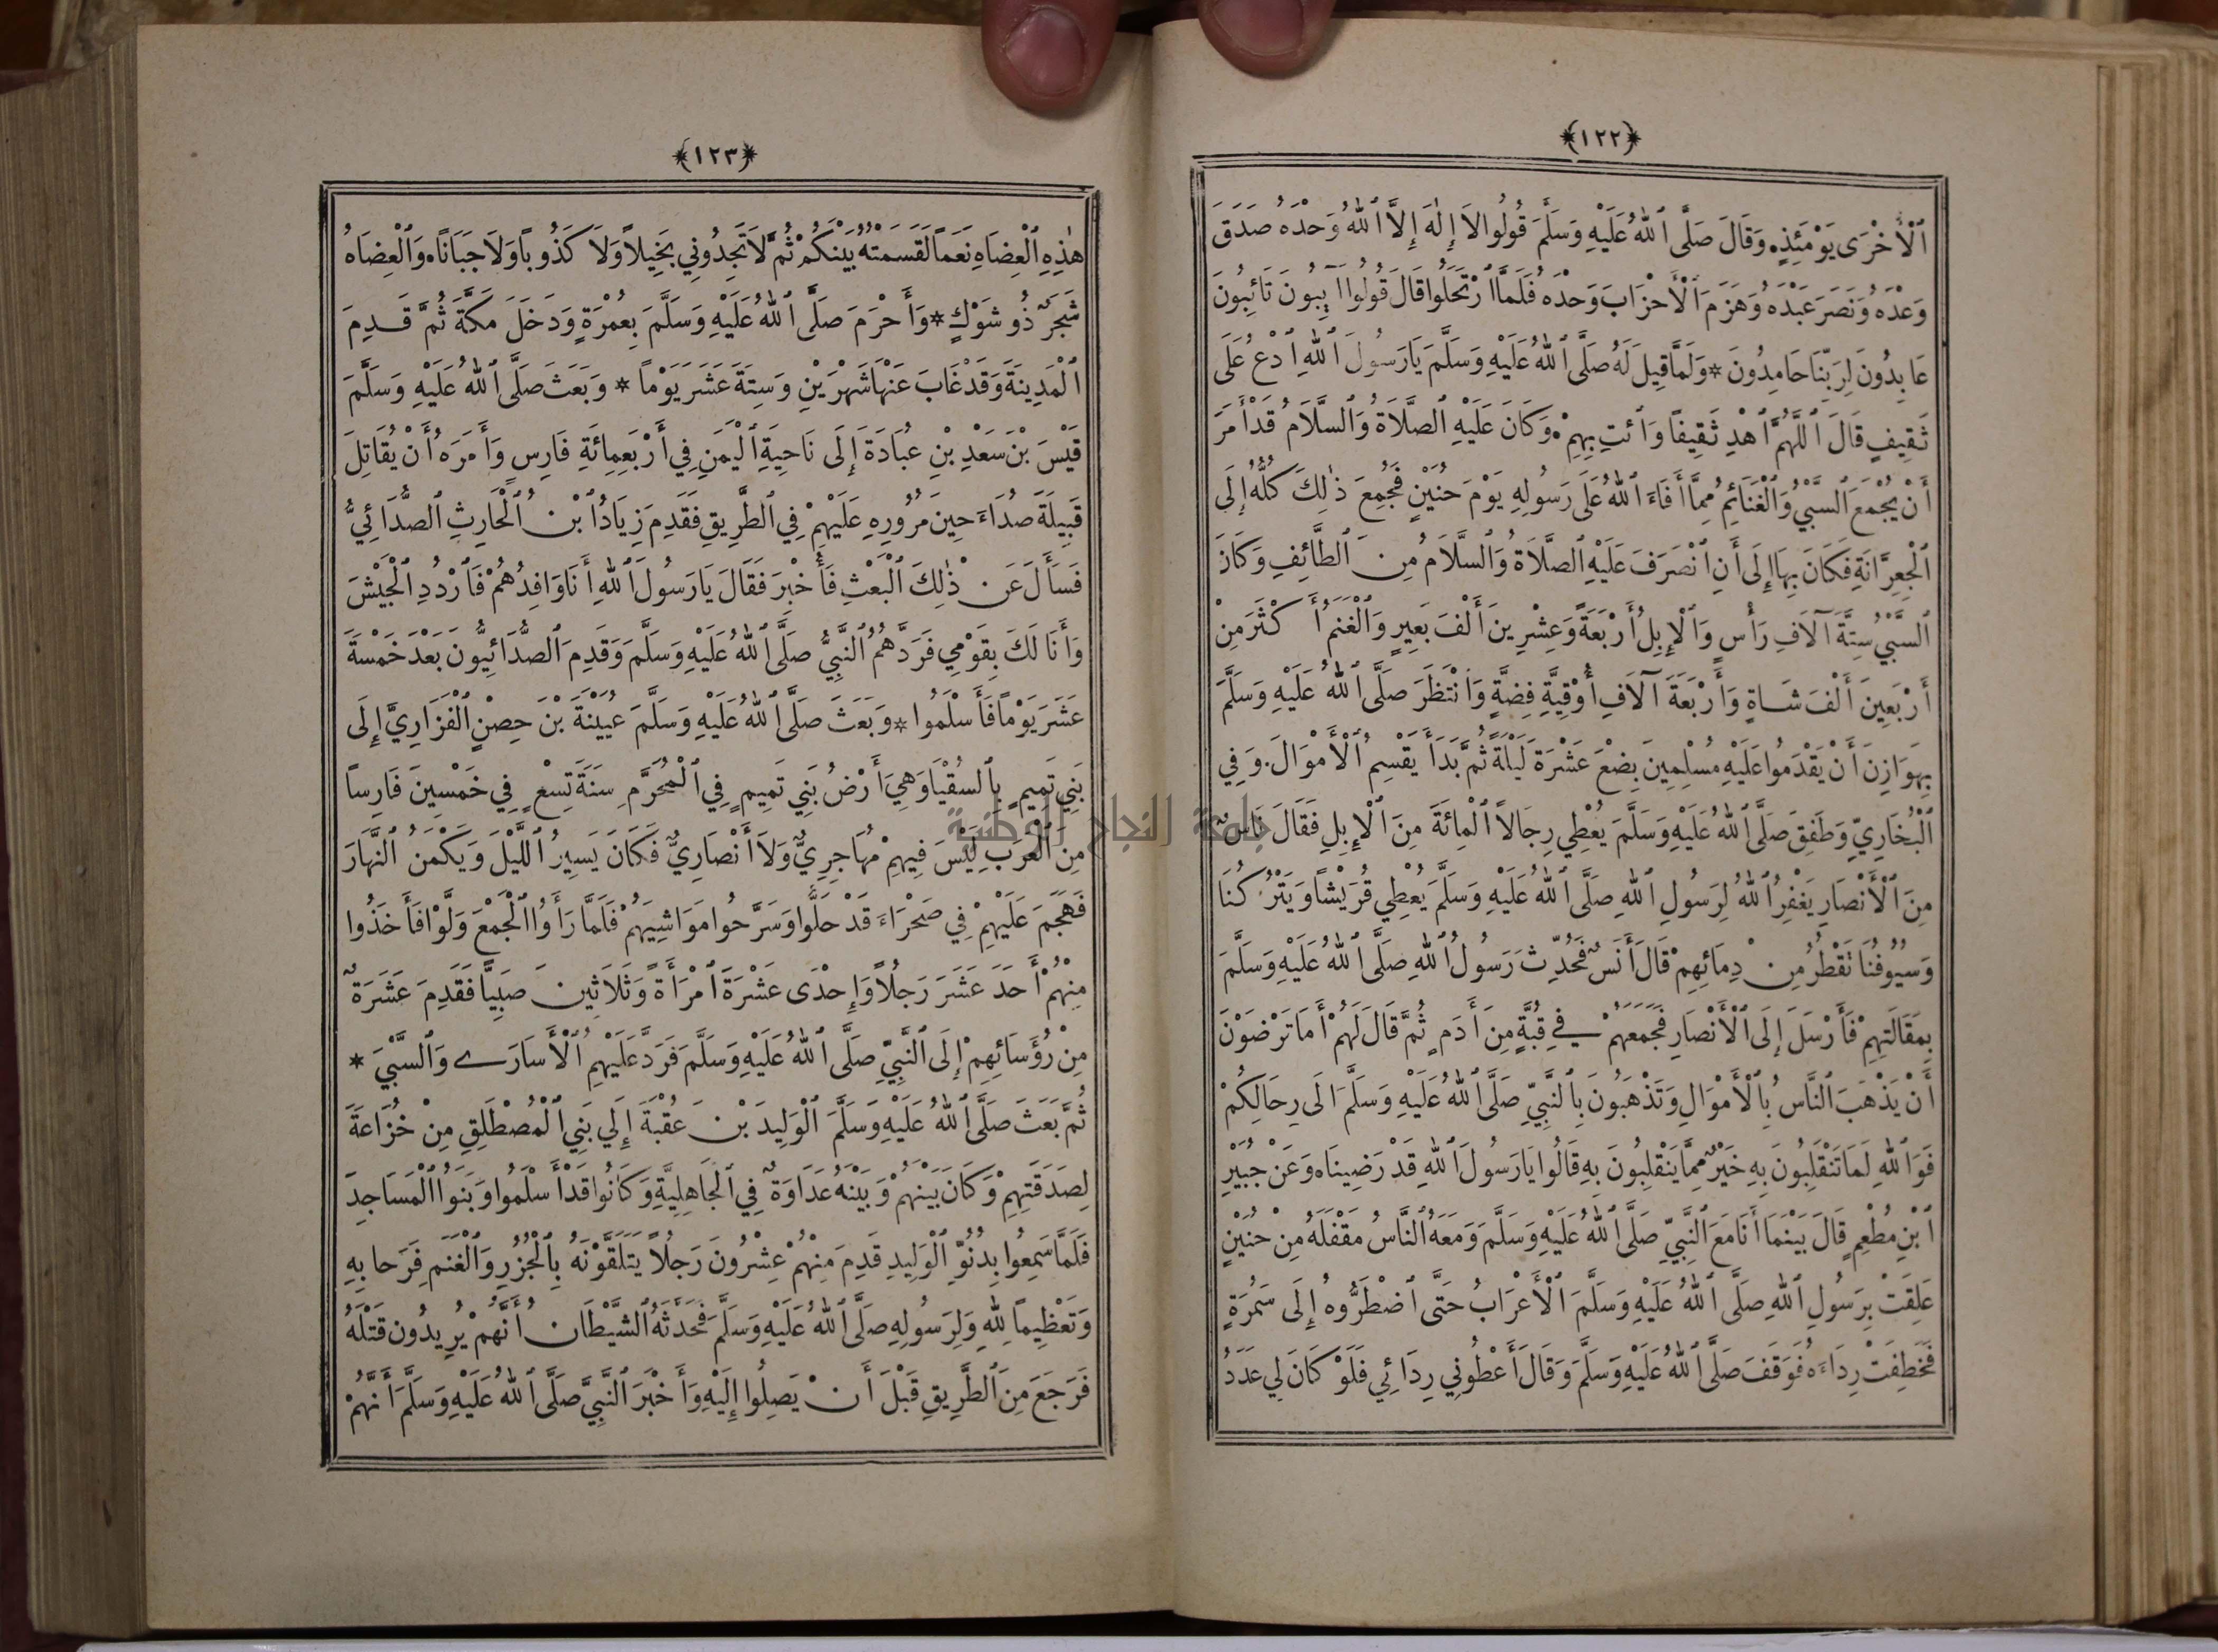 ﴿١٢٢﴾
ٱلْأُخْرَى يَوْمَئِذٍ. وَقَالَ صَلَّى ٱللهُ عَلَيْهِ وَسَلَّمَ قُولُوا لاَ إِلٰهَ إِلاَّ ٱللهُ وَحْدَهُ صَدَقَ
وَعْدَهُ وَنَصَرَ عَبْدَهُ وَهَزَمَ ٱلْأَحْزَابَ وَحْدَهُ فَلَمَّا ٱرْتَحَلُوا قَالَ قُولُوا آيِبُونَ تَائِبُونَ
عَابِدُونَ لِرَبِّنَا حَامِدُونَ * وَلَمَّا قِيلَ لَهُ صَلَّى ٱللهُ عَلَيْهِ وَسَلَّمَ يَا رَسُولَ ٱللهِ ٱدْعُ عَلَى
ثَقِيفٍ قَالَ ٱللَّهُمَّ ٱهْدِ ثَقِيفًا وَٱئْتِ بِهِمْ. وَكَانَ عَلَيْهِ ٱلصَّلاَةُ وَٱلسَّلاَمُ قَدْ أَمَرَ
أَنْ يُجْمَعَ ٱلسَّبْيُ وَٱلْغَنَائِمُ مِمَّا أَفَاءَ ٱللهُ عَلَى رَسُولِهِ يَوْمَ حُنَيْنٍ فَجُمِعَ ذٰلِكَ كُلُّهُ إِلَى
ٱلْجِعِرَّانَةِ فَكَانَ بِهَا إِلَى أَنِ ٱنْصَرَفَ عَلَيْهِ ٱلصَّلاَةُ وَٱلسَّلاَمُ مِنَ ٱلطَّائِفِ وَكَانَ
ٱلسَّبْيُ سِتَّةَ آلاَفِ رَأْسٍ وَٱلْإِبِلُ أَرْبَعَةً وَعِشْرِينَ أَلْفَ بَعِيرٍ وَٱلْغَنَمُ أَكْثَرَ مِنْ
أَرْبَعِينَ أَلْفَ شَاةٍ وَأَرْبَعَةَ آلاَفِ أُوْقِيَّةِ فِضَّةٍ وَٱنْتَظَرَ صَلَّى ٱللهُ عَلَيْهِ وَسَلَّمَ
بِهَوَازِنَ أَنْ يَقْدَمُوا عَلَيْهِ مُسْلِمِينَ بِضْعَ عَشْرَةَ لَيْلَةً ثُمَّ بَدَأَ يَقْسِمُ ٱلْأَمْوَالَ. وَفِي
ٱلْبُخَارِيِّ وَطَفِقَ صَلَّى ٱللهُ عَلَيْهِ وَسَلَّمَ يُعْطِي رِجَالاً ٱلْمِائَةَ مِنَ ٱلْإِبِلِ فَقَالَ نَاسٌ
مِنَ ٱلْأَنْصَارِ يَغْفِرُ ٱللهُ لِرَسُولِ ٱللهِ صَلَّى ٱللهُ عَلَيْهِ وَسَلَّمَ يُعْطِي قُرَيْشًا وَيَتْرُكُنَا
وَسُيُوفُنَا تَقْطُرُ مِنْ دِمَائِهِمْ قَالَ أَنَسٌ فَحُدِّثَ رَسُولُ ٱللهِ صَلَّى ٱللهُ عَلَيْهِ وَسَلَّمَ
بِمَقَالَتِهِمْ فَأَرْسَلَ إِلَى ٱلْأَنْصَارِ فَجَمَعَهُمْ فِي قُبَّةٍ مِنْ أَدَمٍ ثُمَّ قَالَ لَهُمْ أَمَا تَرْضَوْنَ
أَنْ يَذْهَبَ ٱلنَّاسُ بِٱلْأَمْوَالِ وَتَذْهَبُونَ بِٱلنَّبِيِّ صَلَّى ٱللهُ عَلَيْهِ وَسَلَّمَ الَى رِحَالِكُمْ
فَوَٱللهِ لَمَا تَنْقَلِبُونَ بِهِ خَيْرٌ مِمَّا يَنْقَلِبُونَ بِهِ قَالُوا يَا رَسُولَ ٱللهِ قَدْ رَضِينَا. وَعَنْ جُبَيْرِ
ٱبْنِ مُطْعِمٍ قَالَ بَيْنَمَا أَنَا مَعَ ٱلنَّبِيِّ صَلَّى ٱللهُ عَلَيْهِ وَسَلَّمَ وَمَعَهُ ٱلنَّاسُ مَقْفَلَهُ مِنْ حُنَيْنٍ
عَلِقَتْ بِرَسُولِ ٱللهِ صَلَّى ٱللهُ عَلَيْهِ وَسَلَّمَ ٱلْأَعْرَابُ حَتَّى ٱضْطَرُّوهُ إِلَى سَمُرَةٍ
فَخَطِفَتْ رِدَاءَهُ فَوَقَفَ صَلَّى ٱللهُ عَلَيْهِ وَسَلَّمَ وَقَالَ أَعْطُونِي رِدَائِي فَلَوْ كَانَ لِي عَدَدُ
﴿١٢٣﴾
هٰذِهِ ٱلْعِضَاهِ نَعَمًا لَقَسَمْتُهُ بَيْنَكُمْ ثُمَّ لاَ تَجِدُونِي بَخِيلاً وَلاَ كَذُوبًا وَلاَ جَبَانًا. وَٱلْعِضَاهُ
شَجَرٌ ذُو شَوْكٍ * وَأَحْرَمَ صَلَّى ٱللهُ عَلَيْهِ وَسَلَّمَ بِعُمْرَةٍ وَدَخَلَ مَكَّةَ ثُمَّ قَدِمَ
ٱلْمَدِينَةَ وَقَدْ غَابَ عَنْهَا شَهْرَيْنِ وَسِتَّةَ عَشَرَ يَوْمًا * وَبَعَثَ صَلَّى ٱللهُ عَلَيْهِ وَسَلَّمَ
قَيْسَ بْنَ سَعْدِ بْنِ عُبَادَةَ إِلَى نَاحِيَةِ ٱلْيَمَنِ فِي أَرْبَعِمِائَةِ فَارِسٍ وَأَمَرَهُ أَنْ يُقَاتِلَ
قَبِيلَةَ صُدَاءَ حِينَ مُرُورِهِ عَلَيْهِمْ فِي ٱلطَّرِيقِ فَقَدِمَ زِيَادُ ٱبْنُ ٱلْحَارِثِ ٱلصُّدَائِيُّ
فَسَأَلَ عَنْ ذٰلِكَ ٱلْبَعْثِ فَأُخْبِرَ فَقَالَ يَا رَسُولَ ٱللهِ أَنَا وَافِدُهُمْ فَٱرْدُدِ ٱلْجَيْشَ
وَأَنَا لَكَ بِقَوْمِي فَرَدَّهُمُ ٱلنَّبِيُّ صَلَّى ٱللهُ عَلَيْهِ وَسَلَّمَ وَقَدِمَ ٱلصُّدَائِيُّونَ بَعْدَ خَمْسَةَ
عَشَرَ يَوْمًا فَأَسْلَمُوا * وَبَعَثَ صَلَّى ٱللهُ عَلَيْهِ وَسَلَّمَ عُيَيْنَةَ بْنَ حِصْنٍ ٱلْفَزَارِيَّ إِلَى
بَنِي تَمِيمٍ بِٱلسُّقْيَا وَهِيَ أَرْضُ بَنِي تَمِيمٍ فِي ٱلْمُحَرَّمِ سَنَةَ تِسْعٍ فِي خَمْسِينَ فَارِسًا
مِنَ ٱلْعَرَبِ لَيْسَ فِيهِمْ مُهَاجِرِيٌّ وَلاَ أَنْصَارِيٌّ فَكَانَ يَسِيرُ ٱللَّيْلَ وَيَكْمُنُ ٱلنَّهَارَ
فَهَجَمَ عَلَيْهِمْ فِي صَحْرَاءَ قَدْ حَلُّوا وَسَرَّحُوا مَوَاشِيَهُمْ فَلَمَّا رَأَوُا ٱلْجَمْعَ وَلَّوْا فَأَخَذُوا
مِنْهُمْ أَحَدَ عَشَرَ رَجُلاً وَإِحْدَى عَشْرَةَ ٱمْرَأَةً وَثَلاَثِينَ صَبِيًّا فَقَدِمَ عَشَرَةٌ
مِنْ رُؤَسَائِهِمْ إِلَى ٱلنَّبِيِّ صَلَّى ٱللهُ عَلَيْهِ وَسَلَّمَ فَرَدَّ عَلَيْهِمُ ٱلْأَسَارَى وَٱلسَّبْيَ *
ثُمَّ بَعَثَ صَلَّى ٱللهُ عَلَيْهِ وَسَلَّمَ ٱلْوَلِيدَ بْنَ عُقْبَةَ إِلَى بَنِي ٱلْمُصْطَلِقِ مِنْ خُزَاعَةَ
لِصَدَقَتِهِمْ وَكَانَ بَيْنَهُمْ وَبَيْنَهُ عَدَاوَةٌ فِي ٱلْجَاهِلِيَّةِ وَكَانُوا قَدْ أَسْلَمُوا وَبَنَوُا ٱلْمَسَاجِدَ
فَلَمَّا سَمِعُوا بِدُنُوِّ ٱلْوَلِيدِ قَدِمَ مِنْهُمْ عِشْرُونَ رَجُلاً يَتَلَقَّوْنَهُ بِٱلْجُزُرِ وَٱلْغَنَمِ فَرَحًا بِهِ
وَتَعْظِيمًا لِلّٰهِ وَلِرَسُولِهِ صَلَّى ٱللهُ عَلَيْهِ وَسَلَّمَ فَحَدَّثَهُ ٱلشَّيْطَانُ أَنَّهُمْ يُرِيدُونَ قَتْلَهُ
فَرَجَعَ مِنَ ٱلطَّرِيقِ قَبْلَ أَنْ يَصِلُوا إِلَيْهِ وَأَخْبَرَ ٱلنَّبِيَّ صَلَّى ٱللهُ عَلَيْهِ وَسَلَّمَ أَنَّهُمْ
جامعة النجاح الوطنية